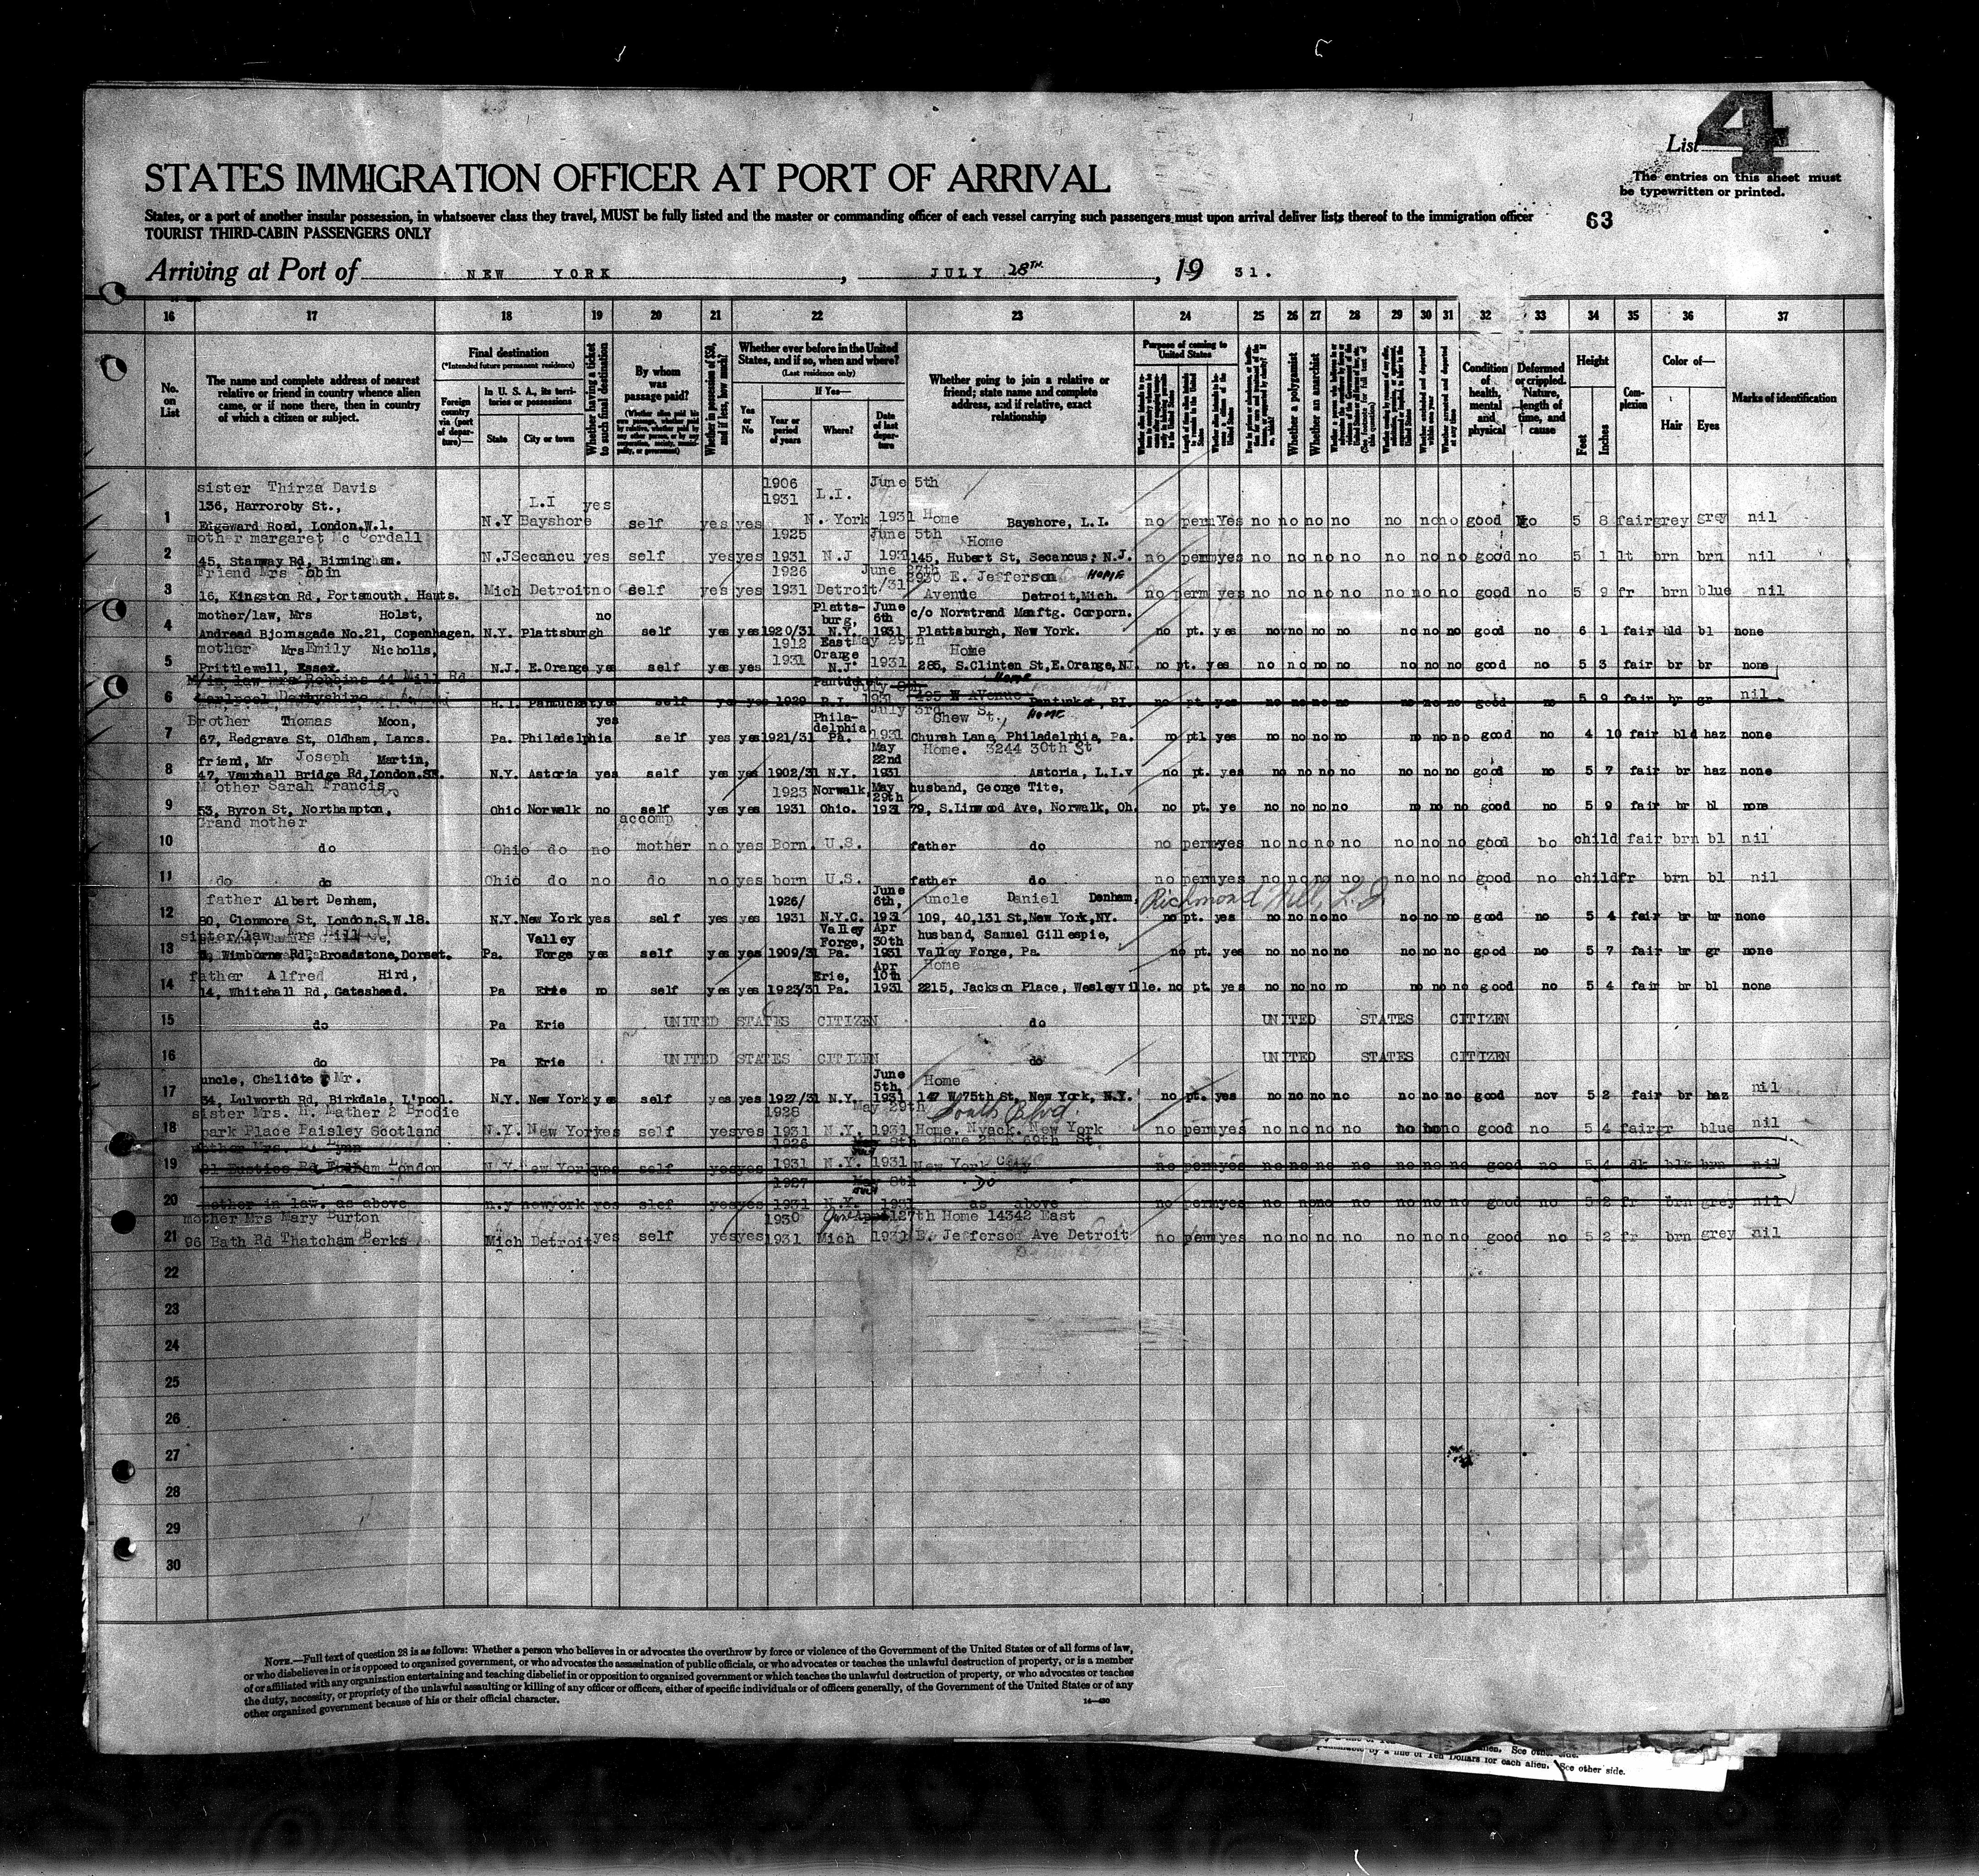 List 4
STATES IMMIGRATION OFFICER AT PORT OF ARRIVAL
The entries on this sheet must
be typewritten or printed.
States, or a port of another insular possession, in whatsoever class they travel, MUST be fully listed and the master or commanding officer of each vessel carrying such passengers must upon arrival deliver lists thereof to the immigration officer
63
TOURIST THIRD-CABIN PASSENGERS ONLY
Arriving at Port of NEW YORK, JULY 28TH, 19 31.
16 17 18 19 20 21 22 23 24 25 26 27 28 29 30 31 32 33 34 35 36 37
No. on List
The name and complete address of nearest relative or friend in country whence alien came, or if none there, then in country of which a citizen or subject.
Final destination
(*Intended future permanent residence)
Foreign country via (port of departure)—
In U. S. A., its territories or possessions
State
City or town
Whether having a ticket to such final destination
By whom was passage paid?
Whether in possession of $50, and if less, how much?
Whether ever before in the United States, and if so, when and where?
(Last residence only)
Yes or No
If Yes—
Year or period of years
Where?
Date of last departure
Whether going to join a relative or friend; state name and complete address, and if relative, exact relationship
Purpose of coming to United States
Whether a polygamist
Whether an anarchist
Condition of health, mental and physical
Deformed or crippled. Nature, length of time, and cause
Height
Feet
Inches
Complexion
Color of—
Hair
Eyes
Marks of identification
sister Thirza Davis 1906 June 5th
136, Harroroby St., L.I yes 1931 L.I.
1 Edgeward Road, London.W.1. N.Y Bayshore self yes yes N. York 1931 Home Bayshore, L.I. no perm Yes no no no no no no no good No 5 8 fair grey grey nil
mother margaret Mc Cordall 1925 June 5th Home
2 45, Stanway Rd, Birmingham. N.J Secancu yes self yes yes 1931 N.J 1931 145, Hubert St, Secancus; N.J. no perm yes no no no no no no no good no 5 1 lt brn brn nil
Friend Mrs 1926 June 27th 2930 E. Jefferson HOME
3 16, Kingston Rd, Portsmouth, Hants. Mich Detroit no self yes yes 1931 Detroit /31 Avenue Detroit,Mich. no perm yes no no no no no no no good no 5 9 fr brn blue nil
mother/law, Mrs Holst, no Platts- burg, June 6th c/o Norstrand Manftg. Corporn.
4 Andread Bjornsgade No.21, Copenhagen. N.Y. Plattsburgh self yes yes 1920/31 N.Y. 1931 Plattsburgh, New York. no pt. yes no no no no no no no good no 6 1 fair bld bl none
mother Mrs Emily Nicholls, 1912 East Orange May 29th Home
5 Prittlewell, Essex. N.J. E.Orange yes self yes yes 1931 N.J. 1931 285, S.Clinton St,E.Orange,NJ. no pt. yes no no no no no no no good no 5 3 fair br br none
M/in law mrs Robbins 44 Mill Rd Pantucket Home
6 Derbyshire R.I. Pantucket yes self yes yes 1929 R.I. 1931 W Avenue Pantucket, RI. no pt. yes no no no no no no no good no 5 9 fair br gr nil
Brother Thomas Moon, yes Phila- delphia July 3rd Chew St., HOME
7 67, Redgrave St, Oldham, Lancs. Pa. Philadelphia self yes yes 1921/31 Pa. 1931 Church Lane, Philadelphia, Pa. no ptl yes no no no no no no no good no 4 10 fair bld haz none
friend, Mr Joseph Martin, May 22nd Home. 3244 30th St
8 47, Vauxhall Bridge Rd,London.SW. N.Y. Astoria yes self yes yes 1902/31 N.Y. 1931 Astoria, L.I. no pt. yes no no no no no no no good no 5 7 fair br haz none
Mother Sarah Francis 1923 Norwalk, May 29th husband, George Tite,
9 53, Byron St, Northampton, Ohio Norwalk no self yes yes 1931 Ohio. 1931 79, S.Linwood Ave, Norwalk, Oh. no pt. ye no no no no no no no good no 5 9 fair br bl none
Grand mother accomp
10 do Ohio do no mother no yes Born. U.S. father do no perm yes no no no no no no no good bo child fair brn bl nil
11 do do Ohio do no do no yes born U.S. father do no perm yes no no no no no no no good no child fr brn bl nil
father Albert Denham, 1926/ June 6th, uncle Daniel Denham, Richmond Hill, L.I.
12 80, Clonmore St, London.S.W.18. N.Y. New York yes self yes yes 1931 N.Y.C. 1931 109, 40,131 St,New York,NY. no pt. yes no no no no no no no good no 5 4 fair br br none
sister/law Mrs Hill Valley Valley Forge, Apr 30th husband, Samuel Gillespie,
13 Wimborne Rd, Broadstone, Dorset. Pa. Forge yes self yes yes 1909/31 Pa. 1931 Valley Forge, Pa. no pt. yes no no no no no no no good no 5 7 fair br gr none
father Alfred Hird, Erie, Apr 10th Home
14 14, Whitehall Rd, Gateshead. Pa Erie no self yes yes 1923/31 Pa. 1931 2215, Jackson Place, Wesleyville. no pt. yes no no no no no no no good no 5 4 fair br bl none
15 do Pa Erie UNITED STATES CITIZEN do UNITED STATES CITIZEN
16 do Pa Erie UNITED STATES CITIZEN do UNITED STATES CITIZEN
uncle, Mr. June 5th, Home
17 34, Lulworth Rd, Birkdale, L'pool. N.Y. New York yes self yes yes 1927/31 N.Y. 1931 147 W/75th St, New York, N.Y. no pt. yes no no no no no no no good nov 5 2 fair br haz nil
sister Mrs. H. Mather 2 Brodie 1928 May 29th South Blvd.
18 park Place Paisley Scotland N.Y. New York yes self yes yes 1931 N.Y. 1931 Home. Nyack. New York no perm yes no no no no no no no good no 5 4 fair gr blue nil
1926 8th Home 60th St
19 Rd London N.Y. New York yes self yes yes 1931 N.Y. 1931 New York City no perm yes no no no no no no no good no 5 4 dk blk brn nil
1927 8th Do
20 mother in law. as above n.y newyork yes slef yes yes 1931 N.Y. 1931 as above no perm yes no no no no no no no good no 5 2 fr brn grey nil
mother Mrs Mary Burton 1930 June 27th Home 14342 East
21 96 Bath Rd Thatcham Berks Mich Detroit yes self yes yes 1931 Mich 1931 E. Jefferson Ave Detroit no perm yes no no no no no no no good no 5 2 fr brn grey nil
22
23
24
25
26
27
28
29
30
NOTE.—Full text of question 28 is as follows: Whether a person who believes in or advocates the overthrow by force or violence of the Government of the United States or of all forms of law,
or who disbelieves in or is opposed to organized government, or who advocates the assassination of public officials, or who advocates or teaches the unlawful destruction of property, or is a member
of or affiliated with any organization entertaining and teaching disbelief in or opposition to organized government or which teaches the unlawful destruction of property, or who advocates or teaches
the duty, necessity, or propriety of the unlawful assaulting or killing of any officer or officers, either of specific individuals or of officers generally, of the Government of the United States or of any
other organized government because of his or their official character.
14—430
alien. See other side.
by a fine of Ten Dollars for each alien. See other side.